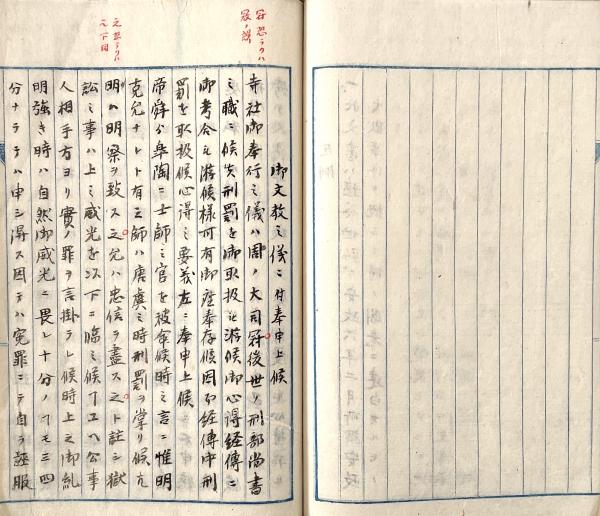 冠ノ誤
冠恐ラクハ
元下同
之恐ラクハ
御文教之儀ニ付奉申上候
寺社御奉行之儀ハ周ノ大司冠後世ノ刑部尚書
之職ニ候
刑罰を御取扱被游候御心得経傳ニ
御考合被游候様可有御座奉存候因而経傳中刑
罰を取扱候心得之要義左ニ奉申上候
帝舜公皐陶ニ士師之官を被命候時之言ニ惟明
克允ナレト有之師ハ唐虞之時刑罰ヲ掌リ候
明ハ明察ヲ致ス之允ハ忠信ヲ盡ス之ト註シ獄
訟之事ハ上之威光を以下ニ臨ミ候
公事
人相手方ヨリ實ハ罪ヲ言掛ラレ候時上之御糺
明強き時ハ自然御威光ニ畏レ十分ノ
モ三四
分ナラテハ申シ得ス因テハ冤罪ニテ自ラ誣服